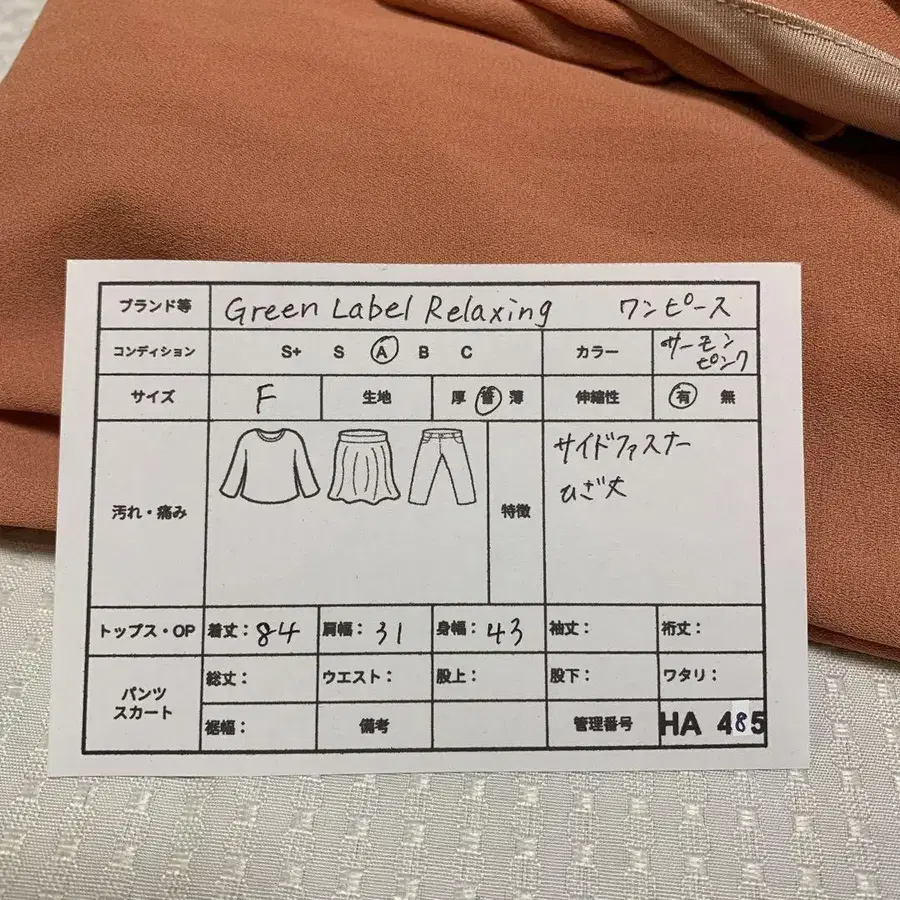 ブランド等 Green Label Relaxing ワンピース
コンディション S+ S A B C カラー サーモン
ピンク
サイズ F 生地 厚 普 薄 伸縮性 有 無
汚れ・痛み 特徴 サイドファスナー
ひざ丈
トップス・OP 着丈: 84 肩幅: 31 身幅: 43 袖丈: 裄丈:
パンツ
スカート
総丈: ウエスト: 股上: 股下: ワタリ:
裾幅: 備考 管理番号 HA 485